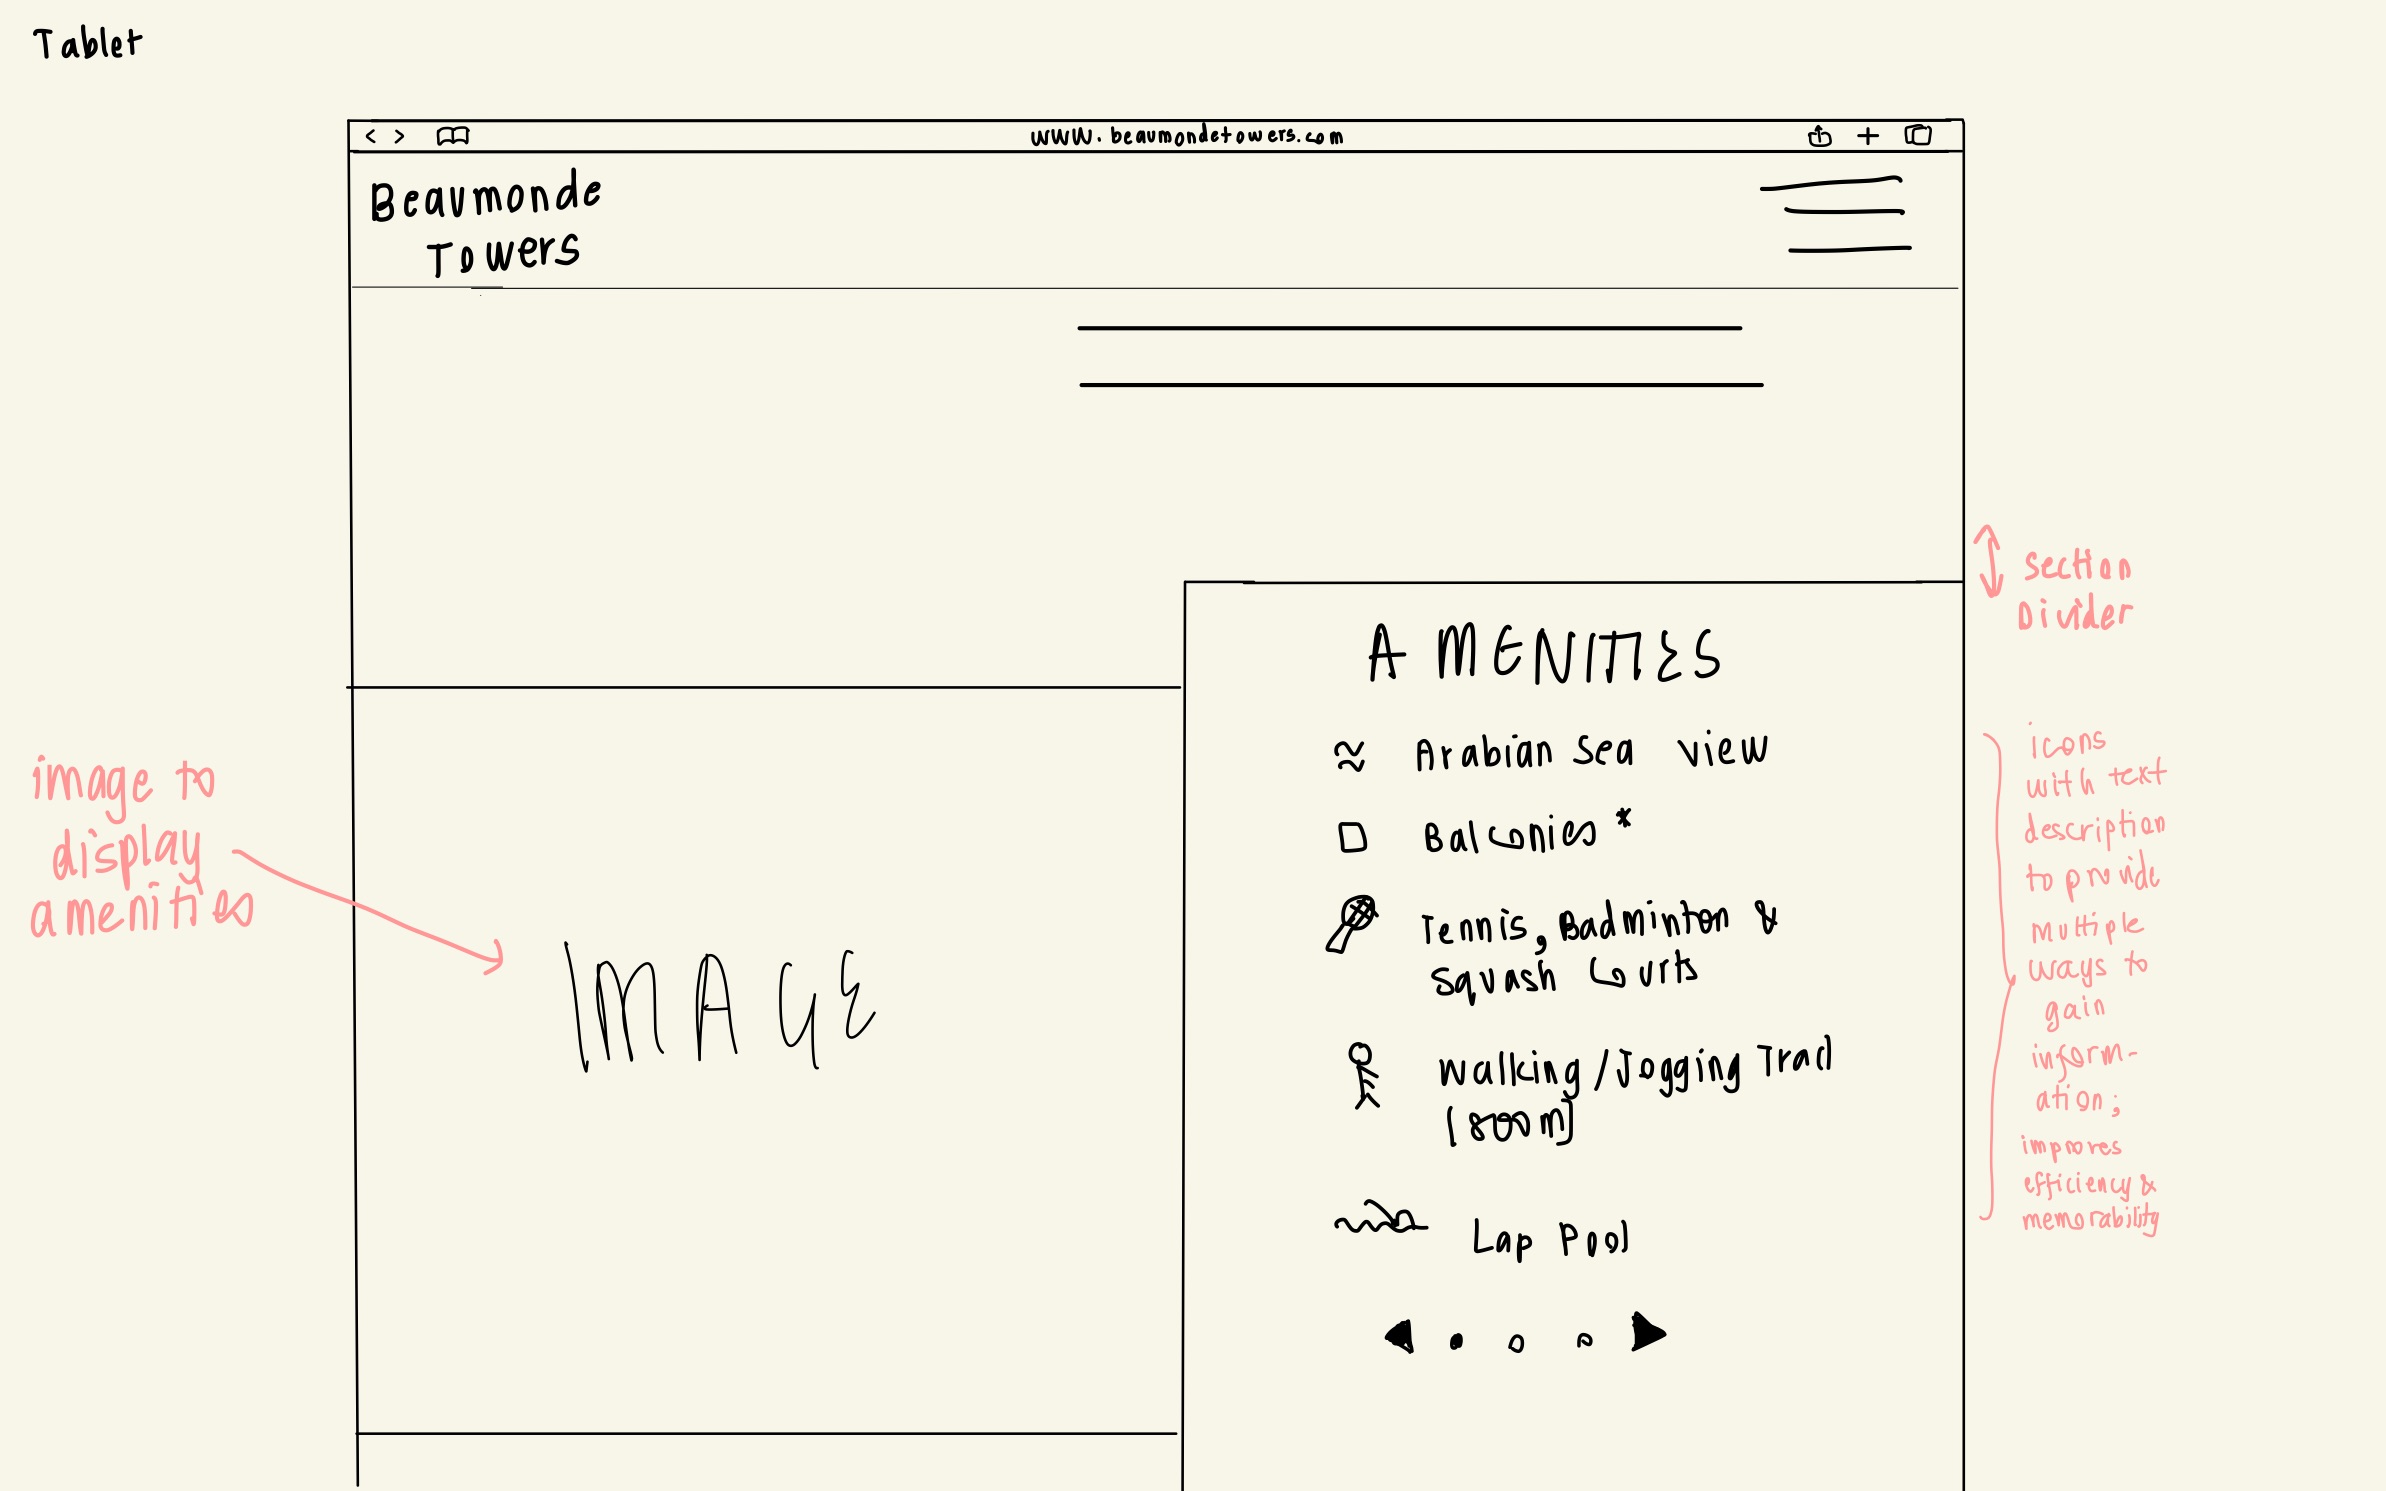 Tablet
www.beaumondetowers.com
Beaumonde
Towers
section
Divider
AMENITIES
Arabian Sea view
Balconies *
Tennis, Badminton &
Squash Courts
Walking/Jogging Track
[800m]
Lap Pool
image to
display
amenities
IMAGE
icons
with text
description
to provide
multiple
ways to
gain
inform-
ation;
improves
efficiency &
memorability